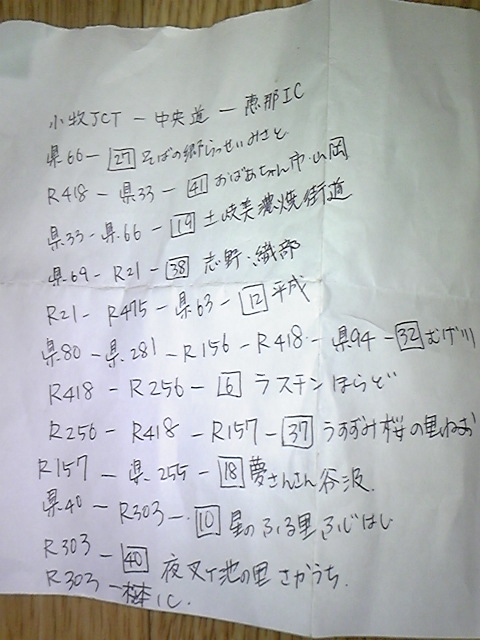 小牧JCT － 中央道 － 恵那IC
県66－ 27 そばの郷らっせぃみさと
R418 － 県33 － 41 おばあちゃん市・山岡
県33－県66 － 19 土岐美濃焼街道
県69－R21－ 38 志野・織部
R21－ R475－県63－ 12 平成
県80－県281－R156－R418－県94－ 32 むげ川
R418－R256－ 6 ラステンほらど
R256－R418－R157－ 37 うすずみ桜の里ねお
R157－県255－ 18 夢さんさん谷汲
県40－R303－ 10 星のふる里ふじはし
R303－ 40 夜叉ヶ池の里さかうち
R303－ IC.